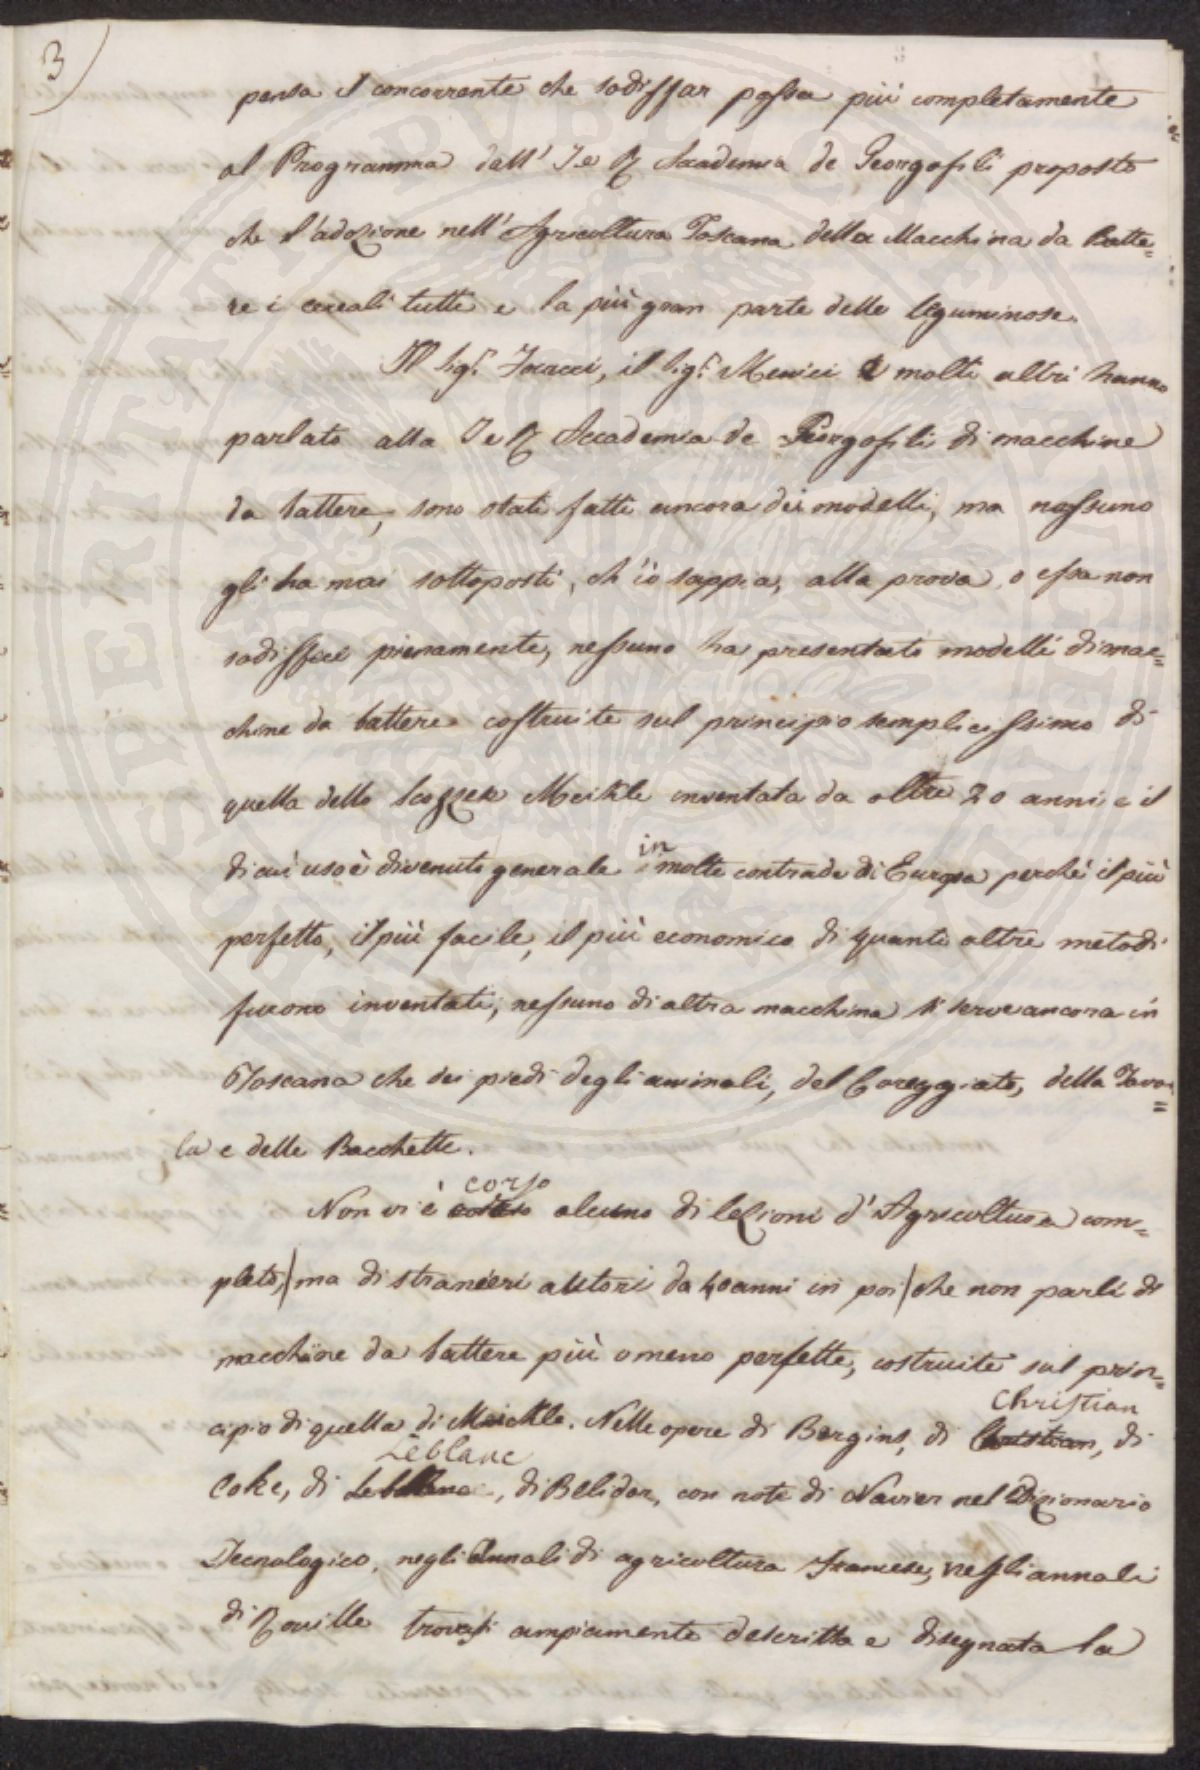 3)
pensa il concorrente che sodisfar possa più completamente
al Programma dall' I e R Accademia de Georgofili proposto
che l'adozione nell'Agricoltura Toscana della Macchina da Batte=
re i cereali tutti e la più gran parte delle leguminose.
Il Sigr. Focacci, il Sigr. Menici e molti altri hanno
parlato alla I e R Accademia de Georgofili di macchine
da battere, sono stati fatti ancora dei modelli, ma nessuno
gli ha mai sottoposti, ch'io sappia, alla prova, o essa non
sodisfece pienamente, nessuno ha presentato modelli di mac=
chine da battere costruite sul principio semplicissimo di
quella dello Scozzese Meikle inventata da oltre 20 anni e il
di cui uso è divenuto generale in molte contrade di Europa perchè il più
perfetto, il più facile, il più economico di quanti altri metodi
furono inventati; nessuno di altra macchina si serve ancora in
Toscana che dei piedi degli animali, del Coreggiato, della Tavo=
la e delle Bacchette.
corso
Non vi è alcuno di lezioni d'Agricoltura com=
pleto, ma di stranieri autori da 40 anni in poi che non parli di
macchine da battere più o meno perfette, costruite sul prin=
Christian
cipio di quella di Meickle. Nelle opere di Borgins, di Christian, di
Leblanc
Coke, di Leblanc, di Belidor, con note di Navier nel Dizionario
Tecnologico, negli Annali di agricoltura Francese, negli annali
di Roville trovasi ampiamente descritta e disegnata la